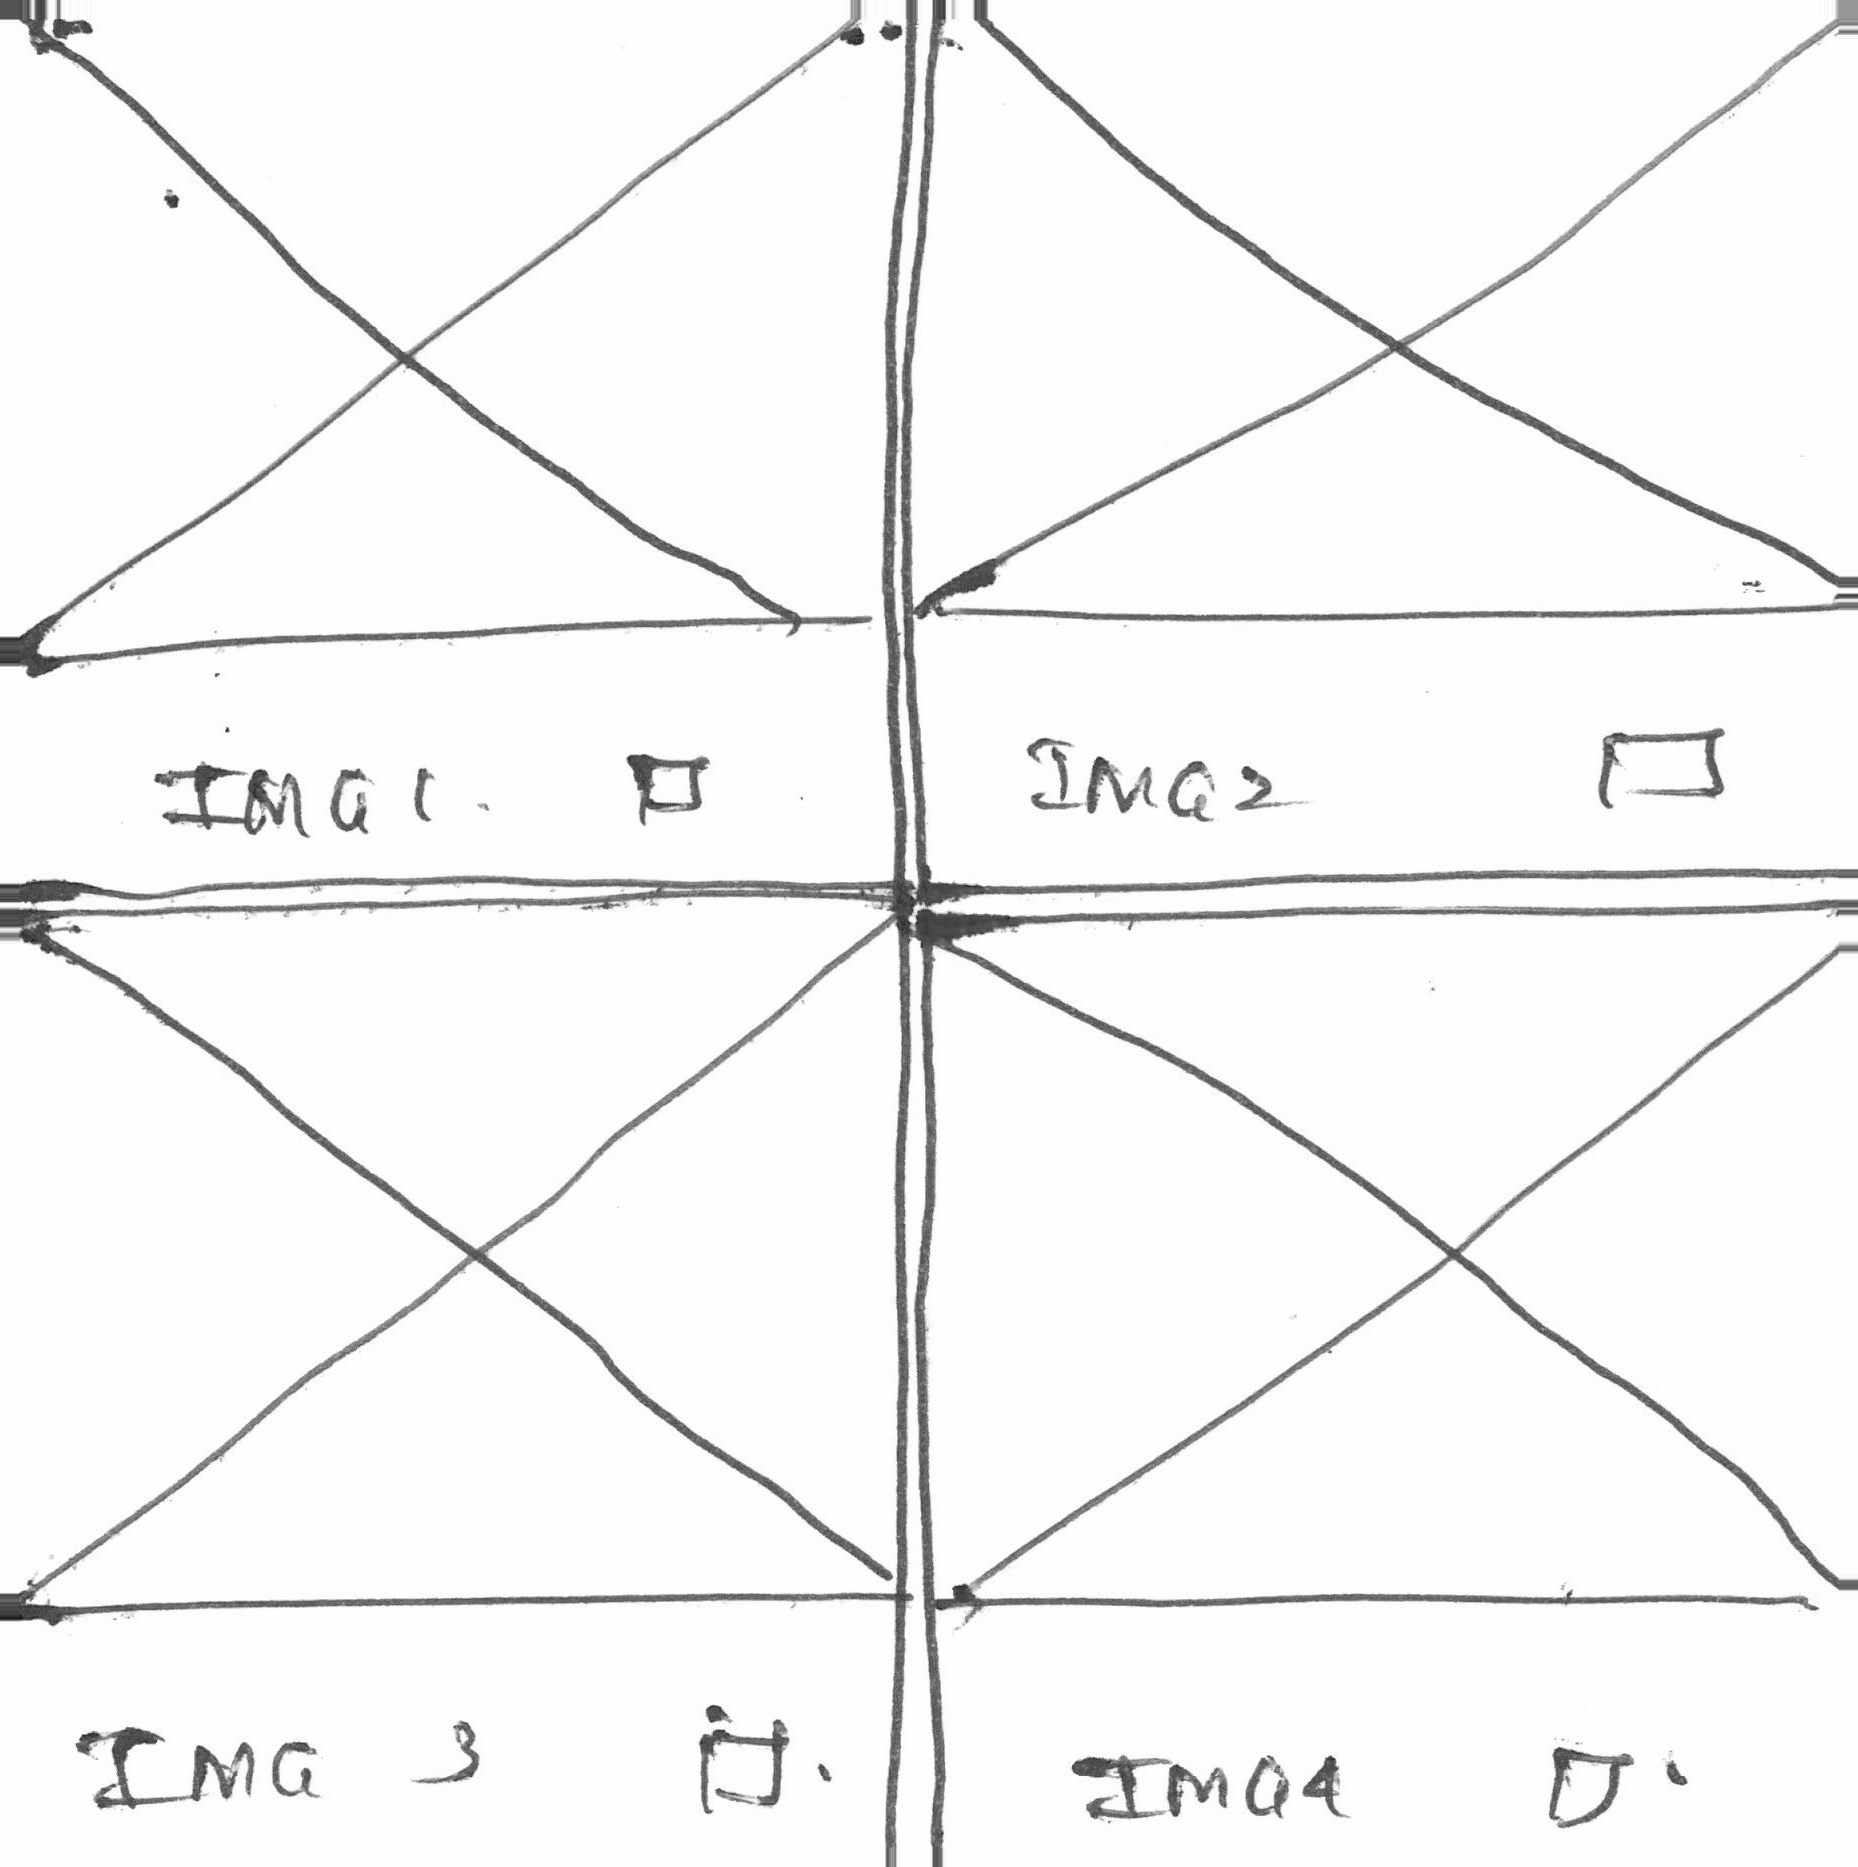 IMG1.
IMG2
IMG 3
IMG4